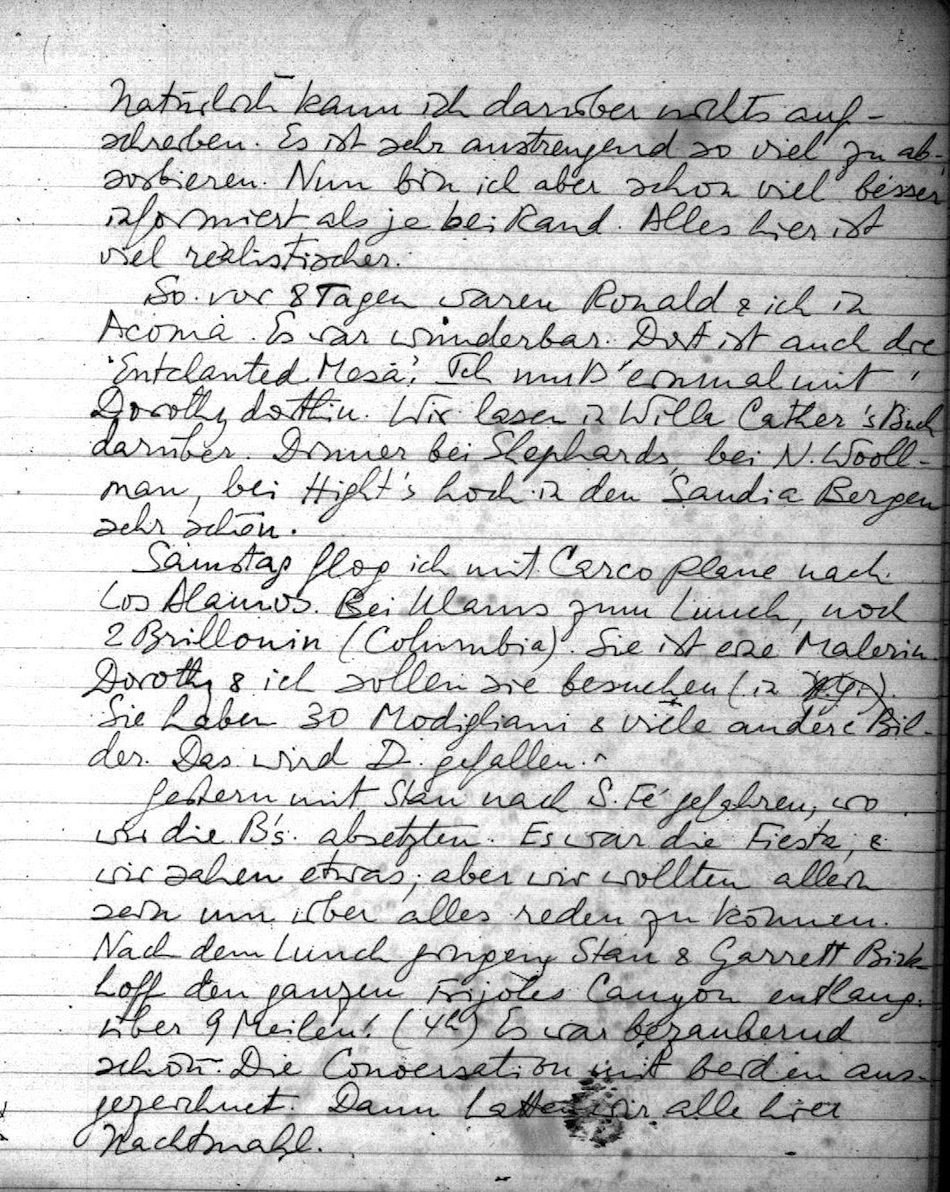 Natürlich kann ich darüber nichts auf-
schreiben. Es ist sehr anstrengend so viel zu ab-
sorbieren. Nun bin ich aber schon viel besser
informiert als je bei Rand. Alles hier ist
viel realistischer.
So. vor 8 Tagen waren Ronald & ich in
Acoma. Es war wunderbar. Dort ist auch die
'Entchanted Mesa'. Ich muß einmal mit
Dorothy dorthin. Wir lasen in Willa Cather's Buch
darüber. Dinner bei Shephards, bei N. Wooll-
man, bei Hight's hoch in den Sandia Bergen
sehr schön.
Samstag flog ich mit Carco plane nach
Los Alamos. Bei Ulams zum Lunch, noch
2 Brillouin (Columbia). Sie ist eine Malerin
Dorothy & ich sollen sie besuchen (in N.Y.).
Sie haben 30 Modigliani & viele andere Bil-
der. Das wird D. gefallen.
Gestern mit Stan nach S. Fé gefahren, wo
wir die B's. absetzten. Es war die Fiesta, &
wir sahen etwas, aber wir wollten allein
sein um über alles reden zu können.
Nach dem Lunch gingen Stan & Garrett Birk-
hoff den ganzen Frijoles Canyon entlang.
über 9 Meilen! (4h) Es war bezaubernd
schön. Die Conversation mit beiden aus-
gezeichnet. Dann hatten wir alle hier
Nachtmahl.